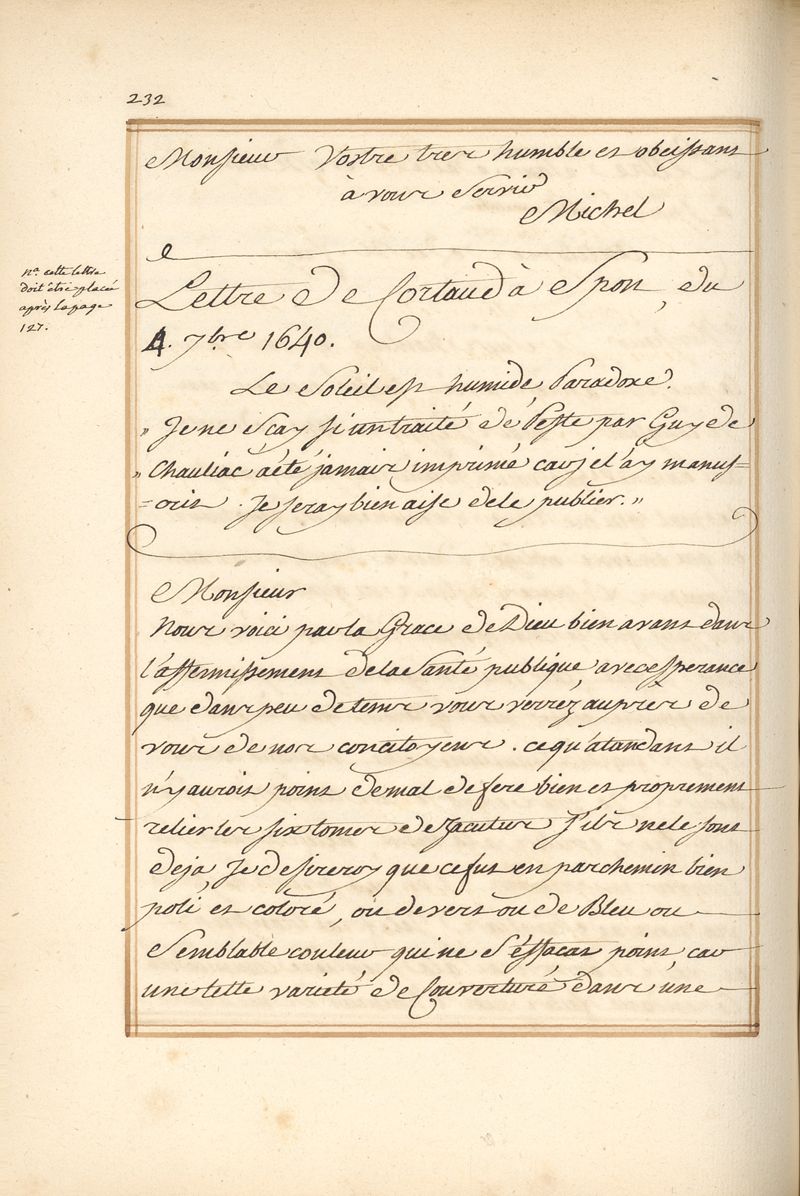 232
Monsieur Vostre tres humble et obeissant
à vous Servir
Michel
Lettre De Cortaud à Spon, du
4. 7bre 1640.
na. cette lettre
doit être placé
après la page
127.
Le Soleil est humide, Paradoxe.
" Je ne Scay si un traité de Peste par Guy de
" Chauliac à été jamais imprimé car je l'ay manus=
=crit. Je seray bien aise de le publier. "
Monsieur
Nous voici par la Grace de Dieu bien avant dans
l'affermissement de la Santé publique avec esperance
que dans peu de tems vous verrez auprès de
vous de nos concitoyens. ce qu'atandant il
n'y auroit point de mal de fere bien et proprement
relier les six tomes de Zacutus s'ils ne le sont
deja Je desirerois que ce fut en parchemin bien
poli, et coloré, ou de vert ou de Bleu ou
Semblable couleur qui ne s'éffacat point, car
une telle varieté de Couverturé dans úne